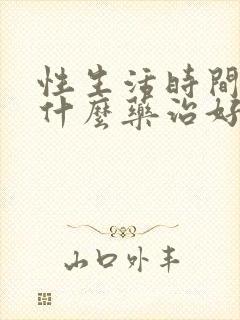 性生活時間
什麼藥治好
山口外丰